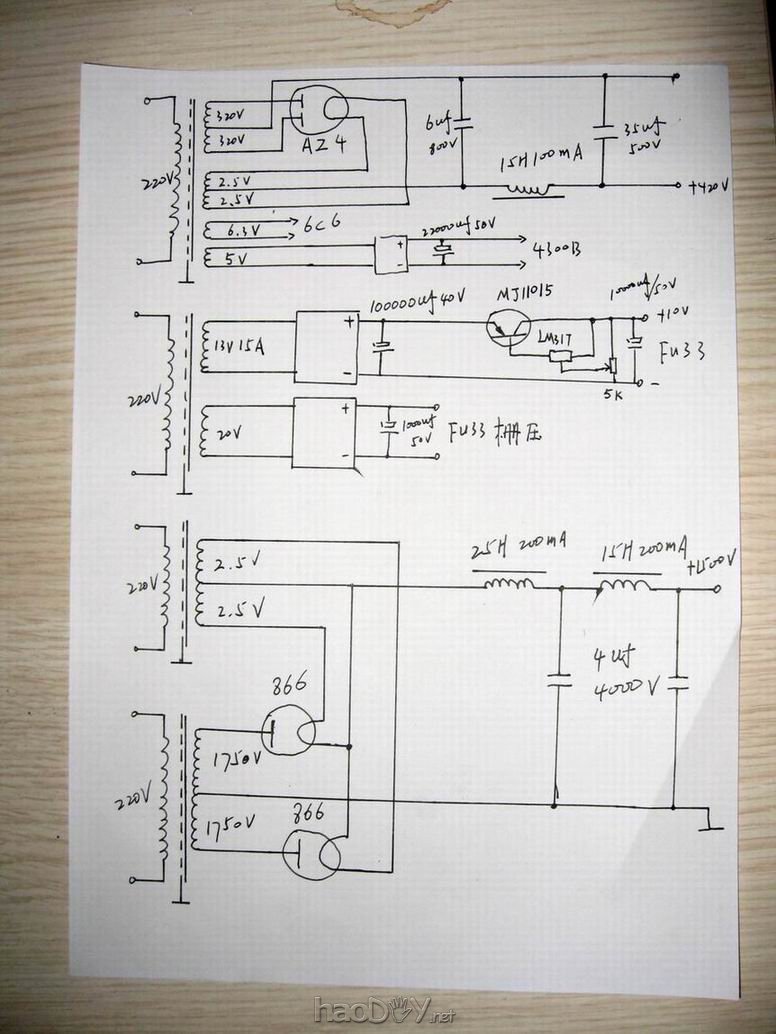 320V
320V
AZ4
6uf
800V
15H 100mA
35uf
500V
220V
2.5V
2.5V
+420V
6.3V
6C6
5V
+
-
22000uf 50V
4300B
100000uf 40V
MJ11015
10000uf/50V
+10V
13V 15A
+
-
LM317
FU33
5K
-
220V
20V
+
-
1000uf
50V
FU33 栅压
25H 200mA
15H 200mA
+1500V
2.5V
220V
2.5V
4uf
4000V
866
1750V
220V
1750V
866
haoDIY.net